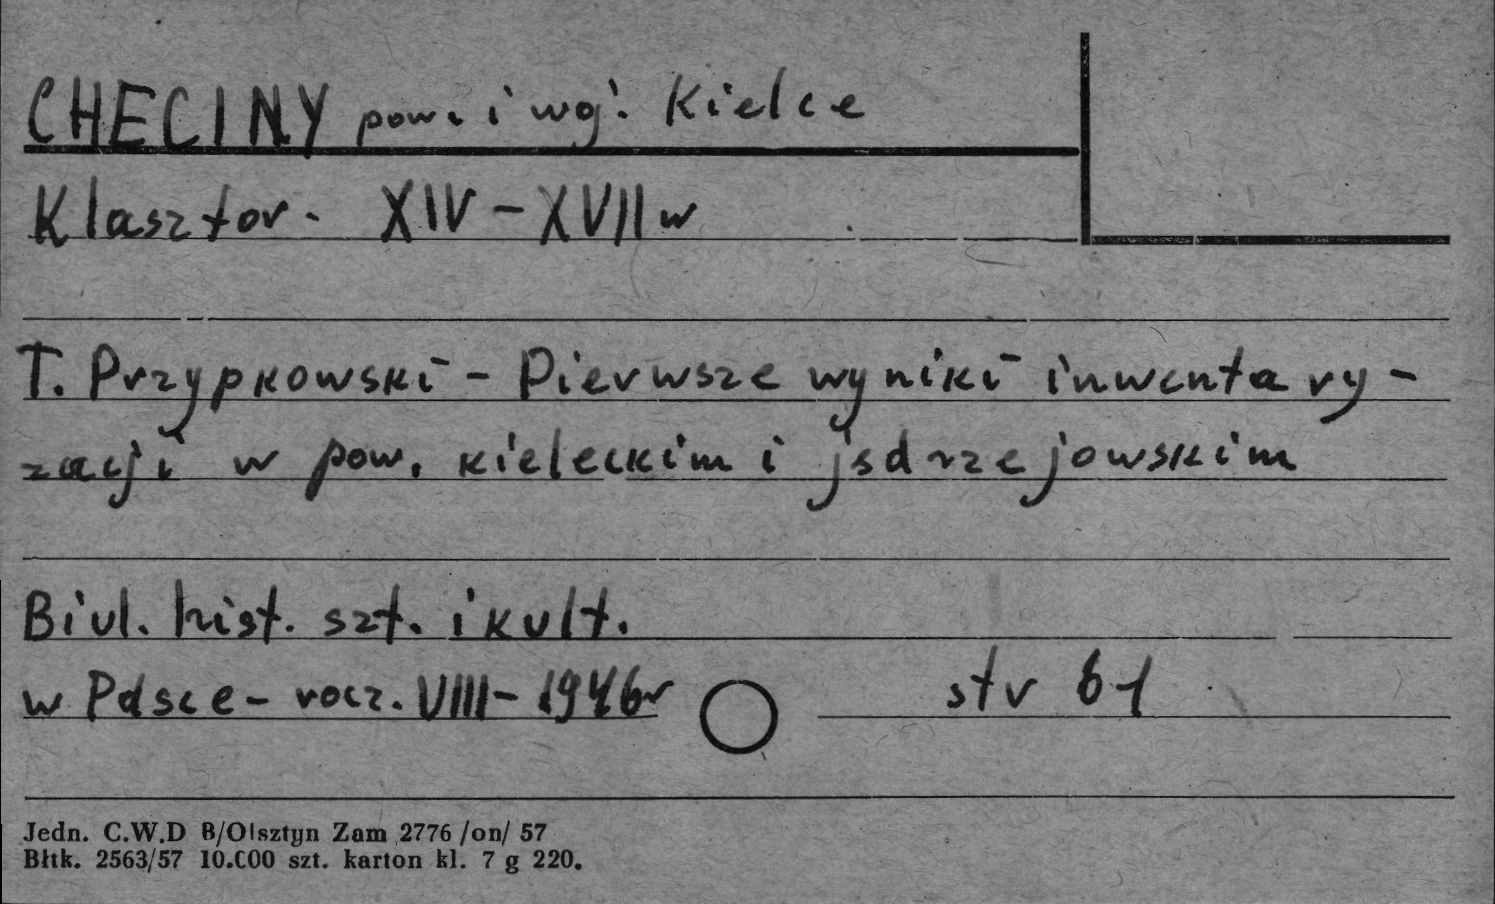 CHECINY pow. i woj. Kielce
Klasztor. XIV - XVII w
T. Przypkowski - Pierwsze wyniki inwentary-
zacji w pow. kieleckim i jedrzejowskim
Biul. hist. szt. i kult.
w Polsce - rocz. VIII - 1946 r str 61
Jedn. C.W.D B/Olsztyn Zam 2776 /on/ 57
Błtk. 2563/57 10.000 szt. karton kl. 7 g 220.